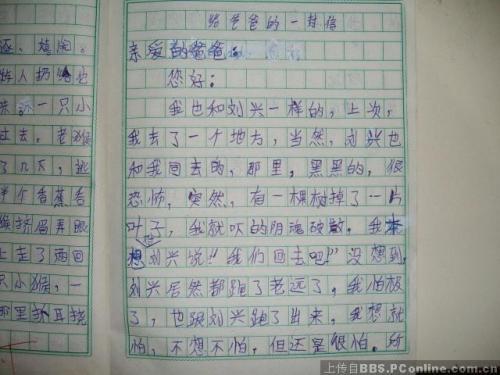 逐、嬉闹。
人扔
一只小
过去。老猴
了几下，逃
半个香蕉香
候挤眉弄眼
上走了两回
只小猴，一
那里抓耳挠
给爸爸的一封信
亲爱的爸爸
您好：
我也和刘兴一样的，上次，
我去了一个地方，当然，刘兴也
和我同去的，那里，黑黑的，很
恐怖，突然，有一棵树掉了一片
叶子，我就吓的阴魂破散。我本
想对刘兴说"我们回去吧！"没想到，
刘兴居然都跑了老远了。我怕极
了，也跟刘兴跑了出来，我想就
怕，不想不怕，但还是很怕。所
上传自BBS.PConline.com.cn